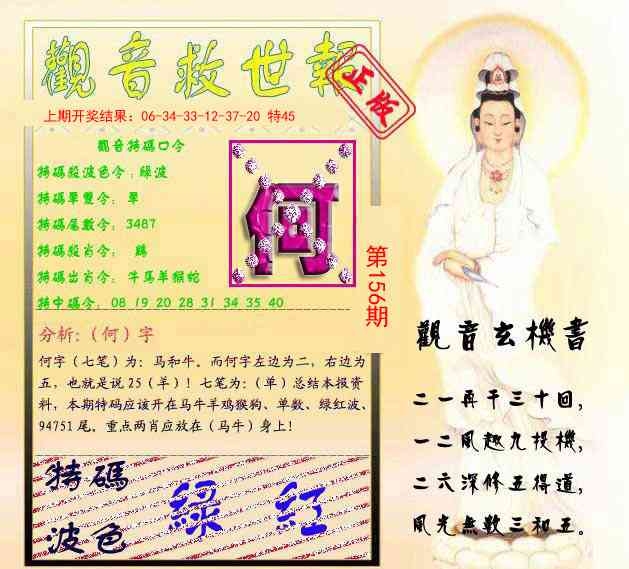 觀音救世報
正版
上期开奖结果：06-34-33-12-37-20 特45
觀音特碼口令
特碼殺波色令：綠波
特碼單雙令： 單
特碼尾數令：3487
特碼殺肖令： 鷄
特碼出肖令：牛馬羊猴蛇
特中碼令：08 19 20 28 31 34 35 40
何
第156期
分析:（何）字
何字（七笔）为：马和牛。而何字左边为二，右边为
五，也就是说 25（羊）！七笔为：（单）总结本报资
料，本期特码应该开在马牛羊鸡猴狗、单数、绿红波、
94751 尾。重点两肖应放在（马牛）身上！
特碼
波色
綠 紅
觀音玄機書
二一再干三十回，
一二風趣九提機，
二六深修五得道，
風光無教三和五。